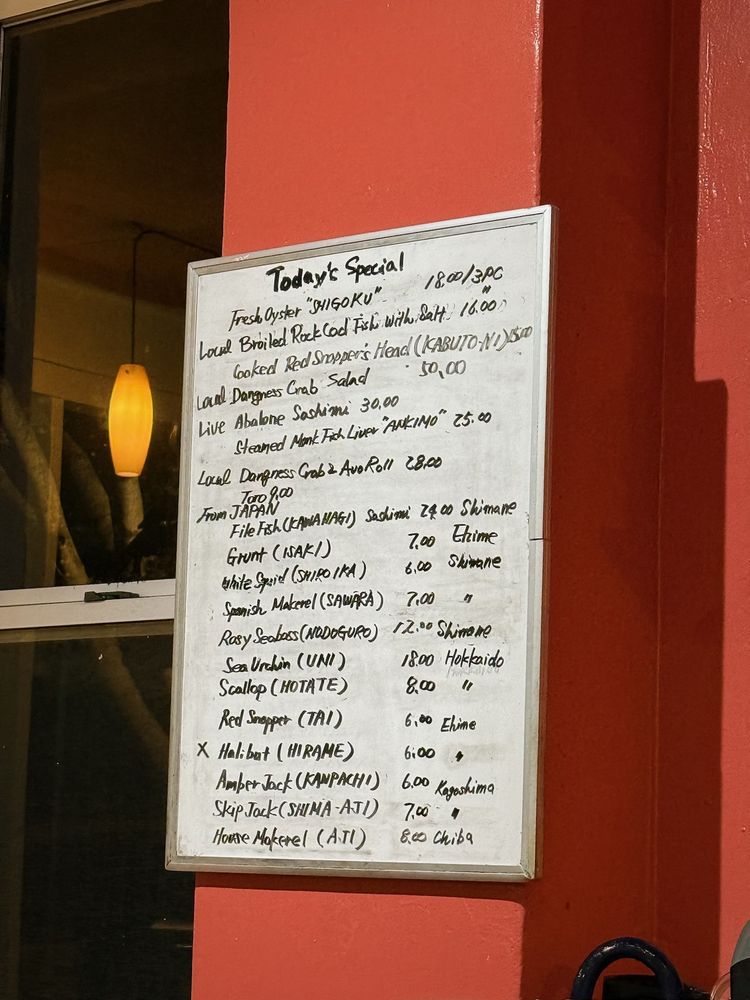 Today's Special
Fresh Oyster "SHIGOKU" 18.00/3PC
Local Broiled Rock Cod Fish with Salt 16.00
Cooked Red Snapper's Head (KABUTO-NI) 15.00
Local Dangness Crab Salad 50,00
Live Abalone Sashimi 30.00
Steamed Monk Fish Liver "ANKIMO" 25.00
Local Dangness Crab & Avo Roll 28.00
Toro 9.00
From JAPAN
File Fish (KAWAHAGI) Sashimi 24.00 Shimane
Grunt (ISAKI) 7.00 Ehime
White Squid (SHIRO IKA) 6.00 Shimane
Spanish Makerel (SAWARA) 7.00 "
Rosy Seabass (NODOGURO) 12.00 Shimane
Sea Urchin (UNI) 18.00 Hokkaido
Scallop (HOTATE) 8.00 "
Red Snapper (TAI) 6.00 Ehime
X Halibut (HIRAME) 6.00 "
Amber Jack (KANPACHI) 6.00 Kagoshima
Skip Jack (SHIMA-AJI) 7.00 "
House Makerel (AJI) 8.00 Chiba